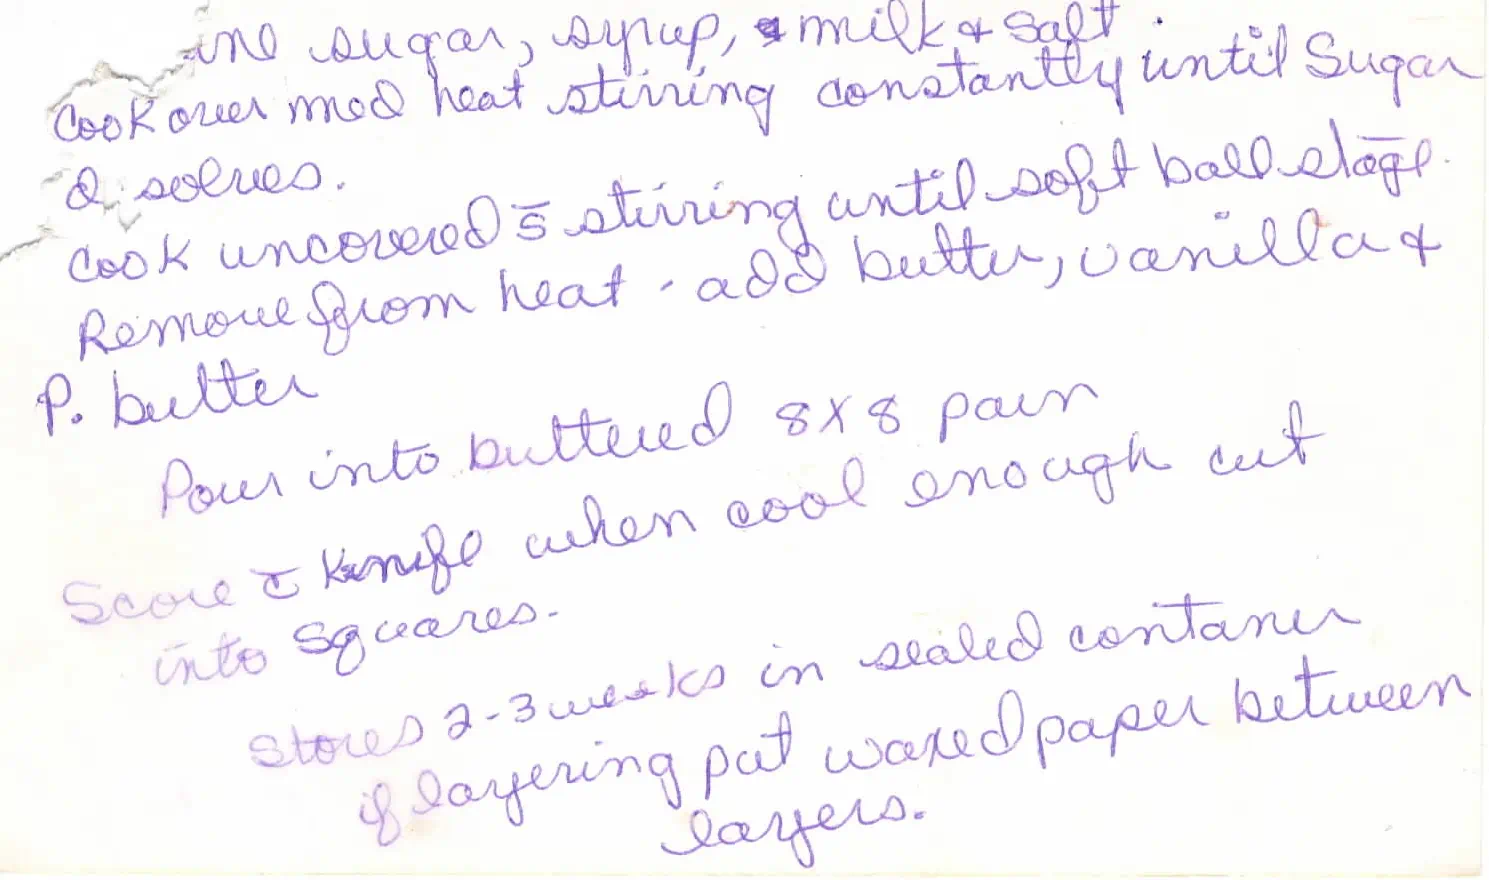 ine sugar, syrup, & milk & salt.
Cook over med heat stirring constantly until Sugar
disolves.
Cook uncovered s̄ stirring until soft ball stage.
Remove from heat - add butter, vanilla &
P. butter
Pour into buttered 8x8 pan
Score c̄ knife when cool enough cut
into squares.
Stores 2-3 weeks in sealed contaner
if layering put waxed paper between
layers.